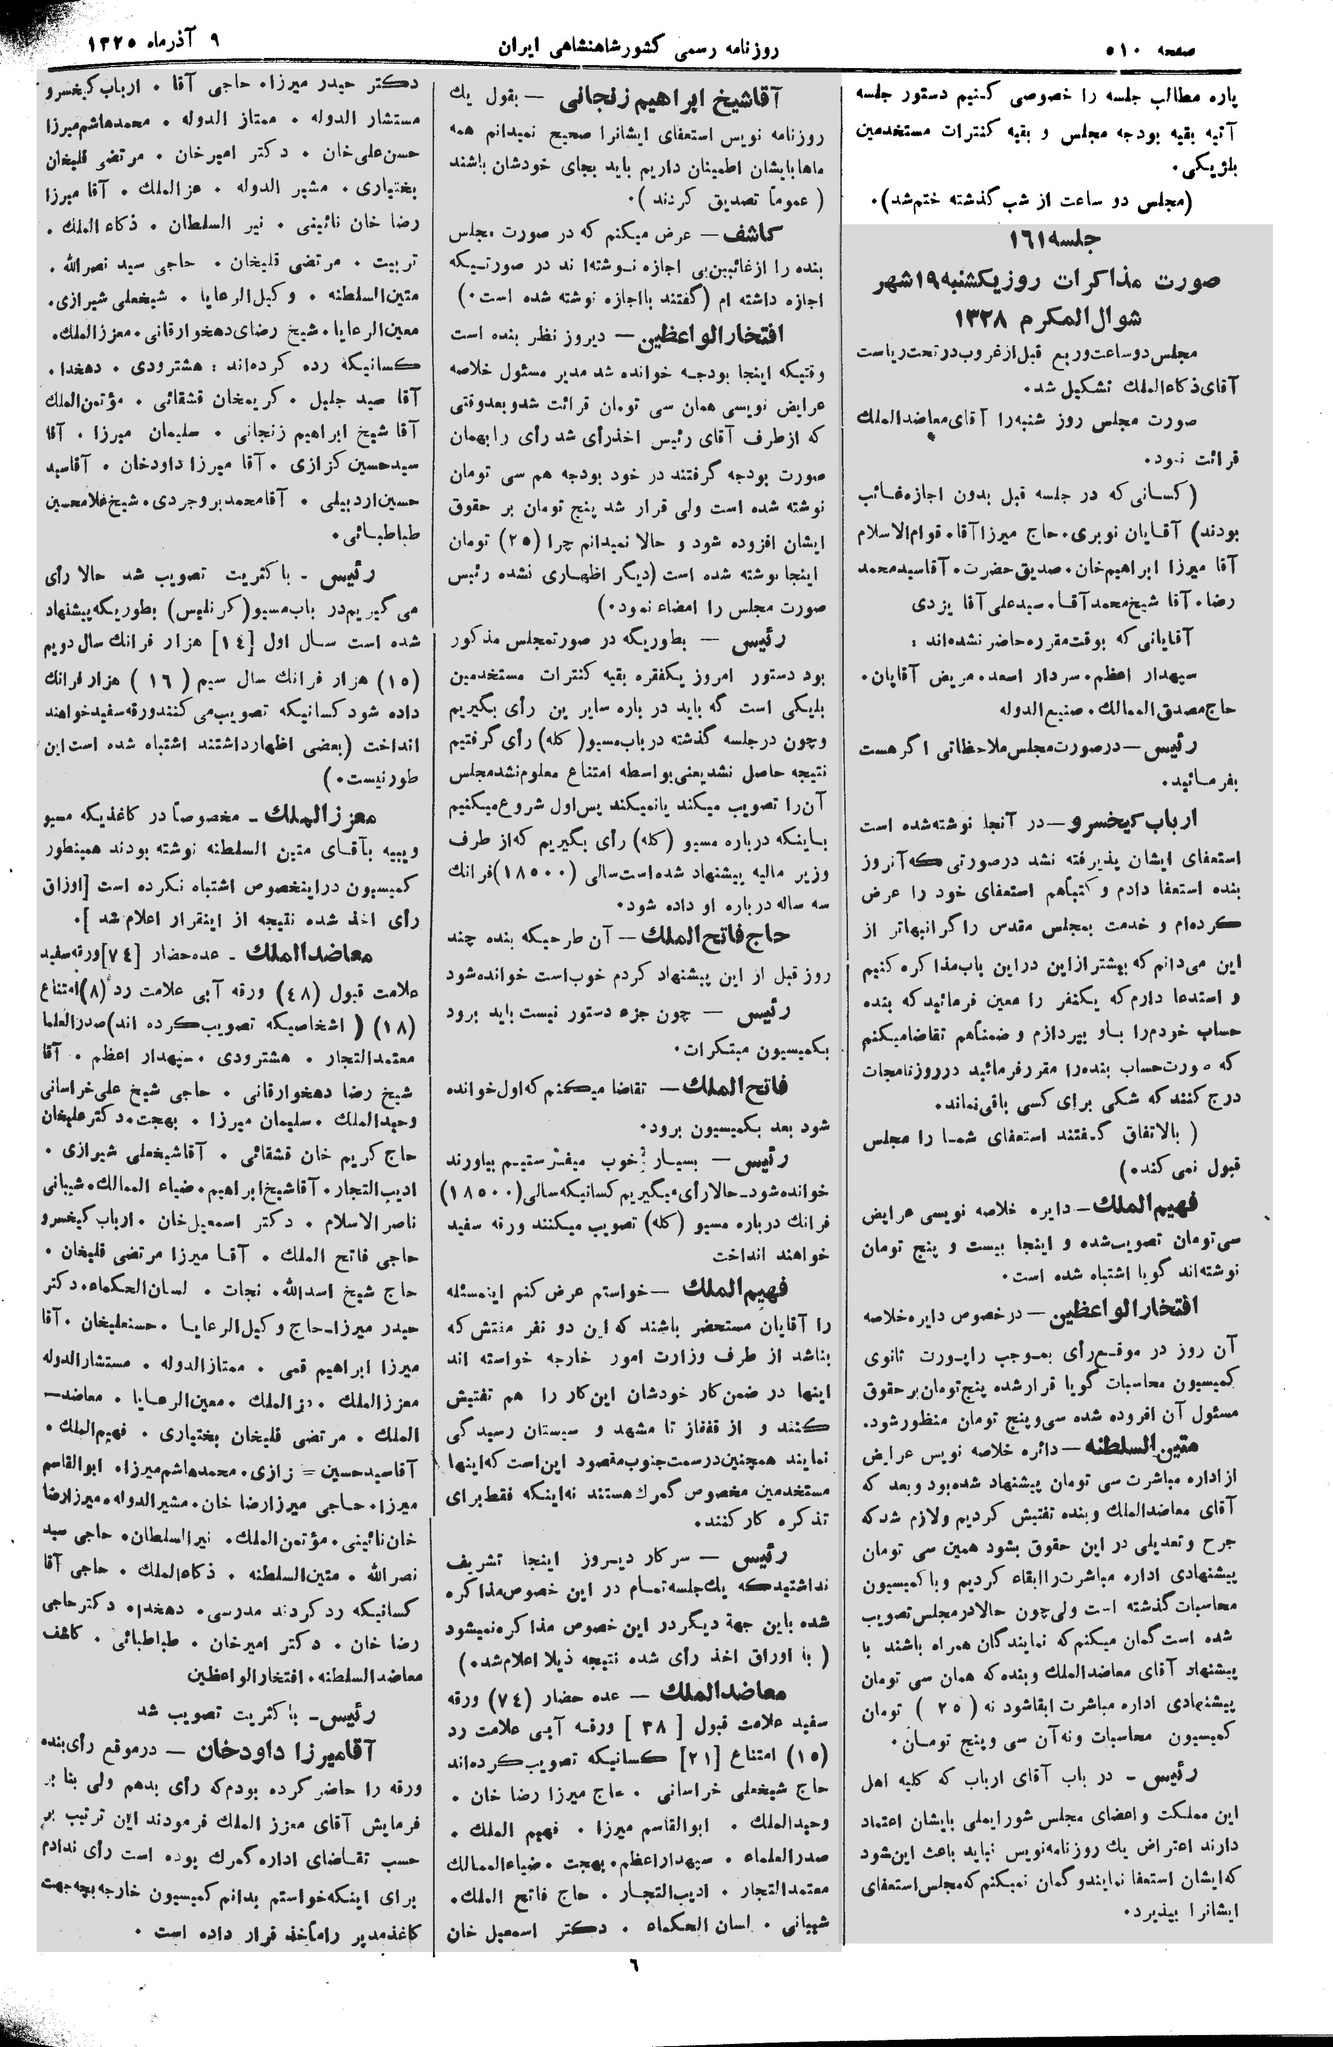 صفحه ٥١٠
روزنامه رسمی کشور شاهنشاهی ایران
٩ آذر ماه ١٣٢٥
پاره مطالب جلسه را خصوصی کنیم دستور جلسه
آتیه بقیه بودجه مجلس و بقیه کنترات مستخدمین
بلژیکی.
(مجلس دو ساعت از شب گذشته ختم شد).
جلسه ١٦١
صورت مذاکرات روز یکشنبه ١٩ شهر
شوال المکرم ١٣٢٨
مجلس دو ساعت و ربع قبل از غروب در تحت ریاست
آقای ذکاء الملک تشکیل شد.
صورت مجلس روز شنبه را آقای معاضد الملک
قرائت نمود.
(کسانی که در جلسه قبل بدون اجازه غائب
بودند) آقایان نوبری. حاج میرزا آقا. قوام الاسلام
آقا میرزا ابراهیم خان. صدیق حضرت. آقا سید محمد
رضا. آقا شیخ محمد آقا. سید علی آقا یزدی
آقایانی که بوقت مقرره حاضر نشده‌اند :
سپهدار اعظم. سردار اسعد. مریض آقایان.
حاج مصدق الممالک. صنیع الدوله
رئیس – در صورت مجلس ملاحظاتی اگر هست
بفرمائید.
ارباب کیخسرو – در آنجا نوشته شده است
استعفای ایشان پذیرفته نشد در صورتی که آنروز
بنده استعفا دادم و کتباً هم استعفای خود را عرض
کرده‌ام و خدمت بمجلس مقدس را گرانبهاتر از
این می‌دانم که بیشتر از این در این باب مذاکره کنیم
و استدعا دارم که یکنفر را معین فرمائید که بنده
حساب خودم را باو بپردازم و ضمناً هم تقاضا میکنم
که صورت حساب بنده را مقرر فرمائید در روزنامجات
درج کنند که شکی برای کسی باقی نماند.
( بالاتفاق گفتند استعفای شما را مجلس
قبول نمی کند.)
فهیم الملک – دایره خلاصه نویسی عرایض
سی تومان تصویب شده و اینجا بیست و پنج تومان
نوشته‌اند گویا اشتباه شده است.
افتخار الواعظین – در خصوص دایره خلاصه
آن روز در موقع رأی بموجب راپورت ثانوی
کمیسیون محاسبات گویا قرار شده پنج تومان بر حقوق
مسئول آن افزوده شده سی و پنج تومان منظور شود.
متین السلطنه – دائره خلاصه نویس عرایض
از اداره مباشرت سی تومان پیشنهاد شده بود و بعد که
آقای معاضد الملک و بنده تفتیش کردیم و لازم شد که
جرح و تعدیلی در این حقوق بشود همین سی تومان
پیشنهادی اداره مباشرت را ابقاء کردیم و با کمیسیون
محاسبات گذشته است ولی چون حالا در مجلس تصویب
شده است گمان میکنم که نمایندگان همراه باشند با
پیشنهاد آقای معاضد الملک و بنده که همان سی تومان
پیشنهادی اداره مباشرت ابقا شود نه (٢٥) تومان
کمیسیون محاسبات و نه آن سی و پنج تومان.
رئیس – در باب آقای ارباب که کلیه اهل
این مملکت و اعضای مجلس شورایملی بایشان اعتماد
دارند اعتراض یك روزنامه نویس نباید باعث این شود
که ایشان استعفا نمایند و گمان نمیکنم که مجلس استعفای
ایشانرا بپذیرد.
آقا شیخ ابراهیم زنجانی – بقول یك
روزنامه نویس استعفای ایشانرا صحیح نمیدانم همه
ماها بایشان اطمینان داریم باید بجای خودشان باشند
( عموماً تصدیق کردند ).
کاشف – عرض میکنم که در صورت مجلس
بنده را از غائبین بی اجازه نوشته اند در صورتیکه
اجازه داشته ام (گفتند با اجازه نوشته شده است.)
افتخار الواعظین – دیروز نظر بنده است
وقتیکه اینجا بودجه خوانده شد مدیر مسئول خلاصه
عرایض نویسی همان سی تومان قرائت شد و بعد وقتی
که از طرف آقای رئیس اخذ رأی شد رأی را بهمان
صورت بودجه گرفتند در خود بودجه هم سی تومان
نوشته شده است ولی قرار شد پنج تومان بر حقوق
ایشان افزوده شود و حالا نمیدانم چرا (٢٥) تومان
اینجا نوشته شده است (دیگر اظهاری نشده رئیس
صورت مجلس را امضاء نمود.)
رئیس – بطوریکه در صورتمجلس مذکور
بود دستور امروز یکفقره بقیه کنترات مستخدمین
بلیکی است که باید در باره سایرین رأی بگیریم
و چون در جلسه گذشته در باب مسیو (کله) رأی گرفتیم
نتیجه حاصل نشد یعنی بواسطه امتناع معلوم نشد مجلس
آن را تصویب میکند یا نمیکند پس اول شروع میکنیم
باینکه درباره مسیو (کله) رأی بگیریم که از طرف
وزیر مالیه پیشنهاد شده است سالی (١٨٥٠٠) فرانك
سه ساله درباره او داده شود.
حاج فاتح الملک – آن طرحیکه بنده چند
روز قبل از این پیشنهاد کردم خوب است خوانده شود
رئیس – چون جزء دستور نیست باید برود
بکمیسیون مبتکرات.
فاتح الملک – تقاضا میکنم که اول خوانده
شود بعد بکمیسیون برود.
رئیس – بسیار خوب میفرستیم بیاورند
خوانده شود – حالا رأی میگیریم کسانیکه سالی (١٨٥٠٠)
فرانك درباره مسیو (کله) تصویب میکنند ورقه سفید
خواهند انداخت
فهیم الملک – خواستم عرض کنم اینمسئله
را آقایان مستحضر باشند که این دو نفر مفتش که
بناشد از طرف وزارت امور خارجه خواسته اند
اینها در ضمن کار خودشان این کار را هم تفتیش
کنند و از قفقاز تا مشهد و سیستان رسیدگی
نمایند همچنین در سمت جنوب مقصود این است که اینها
مستخدمین مخصوص گمرك هستند نه اینکه فقط برای
تذکره کار کنند.
رئیس – سرکار دیروز اینجا تشریف
نداشتید که یك جلسه تمام در این خصوص مذاکره
شده باین جهة دیگر در این خصوص مذاکره نمیشود
( با اوراق اخذ رأی شده نتیجه ذیلا اعلام شد.)
معاضد الملک – عده حضار (٧٤) ورقه
سفید علامت قبول [٣٨] ورقه آبی علامت رد
(١٥) امتناع [٢١] کسانیکه تصویب کرده‌اند
حاج شیخعلی خراسانی . حاج میرزا رضا خان .
وحید الملک . ابوالقاسم میرزا . فهیم الملک .
صدر العلماء . سپهدار اعظم. بهجت . ضیاء الممالک
معتمد التجار . ادیب التجار . حاج فاتح الملک.
شیبانی . لسان الحکماء . دکتر اسمعیل خان
دکتر حیدر میرزا. حاجی آقا . ارباب کیخسرو
مستشار الدوله . ممتاز الدوله . محمد هاشم میرزا
حسن علی خان . دکتر امیر خان . مرتضی قلیخان
بختیاری. مشیر الدوله . عز الملک . آقا میرزا
رضا خان نائینی . نیر السلطان . ذکاء الملک .
تربیت . مرتضی قلیخان . حاجی سید نصر الله .
متین السلطنه . وکیل الرعایا . شیخعلی شیرازی.
معین الرعایا. شیخ رضای دهخوارقانی. معزز الملک.
کسانیکه رده کرده‌اند : هشترودی . دهخدا.
آقا سید جلیل . کریمخان قشقائی . مؤتمن الملک
آقا شیخ ابراهیم زنجانی . سلیمان میرزا . آقا
سید حسین کزازی . آقا میرزا داود خان . آقا سید
حسین اردبیلی . آقا محمد بروجردی. شیخ غلامحسین
طباطبائی.
رئیس – با کثریت تصویب شد حالا رأی
می گیریم در باب مسیو (کرنلیس) بطوریکه پیشنهاد
شده است سال اول [١٤] هزار فرانك سال دویم
(١٥) هزار فرانك سال سیم (١٦) هزار فرانك
داده شود کسانیکه تصویب می کنند ورقه سفید خواهند
انداخت (بعضی اظهار داشتند اشتباه شده است این
طور نیست.)
معزز الملک – مخصوصاً در کاغذیکه مسیو
ویبیه بآقای متین السلطنه نوشته بودند همینطور
کمیسیون در اینخصوص اشتباه نکرده است [اوراق
رأی اخذ شده نتیجه از اینقرار اعلام شد ].
معاضد الملک – عده حضار [٧٤] ورقه سفید
علامت قبول (٤٨) ورقه آبی علامت رد (٨) امتناع
(١٨) ( اشخاصیکه تصویب کرده اند) صدر العلما
معتمد التجار . هشترودی . سپهدار اعظم . آقا
شیخ رضا دهخوارقانی . حاجی شیخ علی خراسانی
وحید الملک . سلیمان میرزا . بهجت. دکتر علیخان
حاج کریم خان قشقائی . آقا شیخعلی شیرازی .
ادیب التجار. آقا شیخ ابراهیم. ضیاء الممالک. شیبانی
ناصر الاسلام . دکتر اسمعیل خان . ارباب کیخسرو
حاجی فاتح الملک . آقا میرزا مرتضی قلیخان .
حاج شیخ اسد الله. نجات . لسان الحکماء. دکتر
حیدر میرزا – حاج وکیل الرعایا . حسنعلیخان . آقا
میرزا ابراهیم قمی . ممتاز الدوله . مستشار الدوله
معزز الملک . عز الملک . معین الرعایا . معاضد–
الملک . مرتضی قلیخان بختیاری . فهیم الملک .
آقا سید حسین = زازی. محمد هاشم میرزا. ابوالقاسم
میرزا. حاجی میرزا رضا خان. مشیر الدوله. میرزا رضا
خان نائینی. مؤتمن الملک. نیر السلطان. حاجی سید
نصر الله . متین السلطنه . ذکاء الملک . حاجی آقا
کسانیکه رد کردند مدرسی. دهخدا. دکتر حاجی
رضا خان . دکتر امیر خان . طباطبائی . کاشف
معاضد السلطنه. افتخار الواعظین
رئیس – با کثریت تصویب شد
آقا میرزا داود خان – در موقع رأی بنده
ورقه را حاضر کرده بودم که رأی بدهم ولی بنا بر
فرمایش آقای معزز الملک فرمودند این ترتیب بر
حسب تقاضای اداره گمرك بوده است رأی ندادم
برای اینکه خواستم بدانم کمیسیون خارجه بچه جهت
کاغذ مدیر را مأخذ قرار داده است .
٦